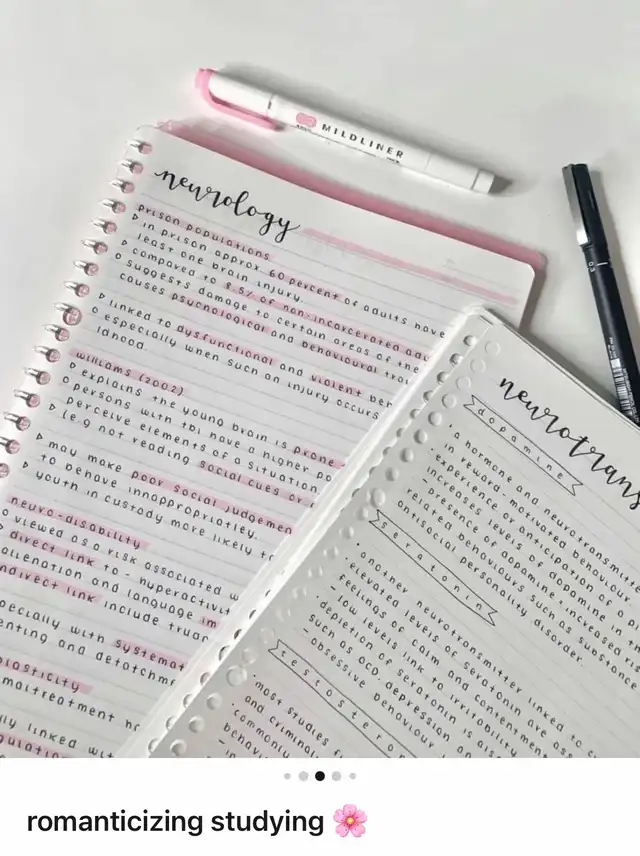 MILDLINER
neurology
prison populations
in prison approx 60 percent of adults have
least one brain injury.
compared to 8.5% of non-incarcerated
suggests damage to certain areas of the
causes psychological and behavioural
linked to dysfunctional and violent
especially when such an injury occurs
ldhood.
williams (2002)
explains the young brain is prone
persons with tbi have a higher
perceive elements of a situation
(e.g not reading social cues or
may make poor social judgemen
to behave innappropriatley.
youth in custody more likely to
neuro-disability
viewed as a risk associated
direct link to - hyperactivit
alienation and language im
ndirect link include truan
pecially with systemat
enting and detatchm
plasticity
maltreatment
lly linked wit
0.3
neurotrans
dopamine
a hormont and neurotransmitte
in reward-motivated behaviour
experience or anticipation of a
increases levels of dopamine in
presence of dopamine + increased
related behaviours such as substance
antisocial personality disorder.
seratonin
nother neurotransmitter linked to
elevated levels of seratonin are ass
feelings of calm and contentment
low levels link to irritability
depletion of seratonin is also
such as OCD, depression an
obsessive behaviour
testosteron
most studies
and criminal
commonly
behavi
romanticizing studying 🌸